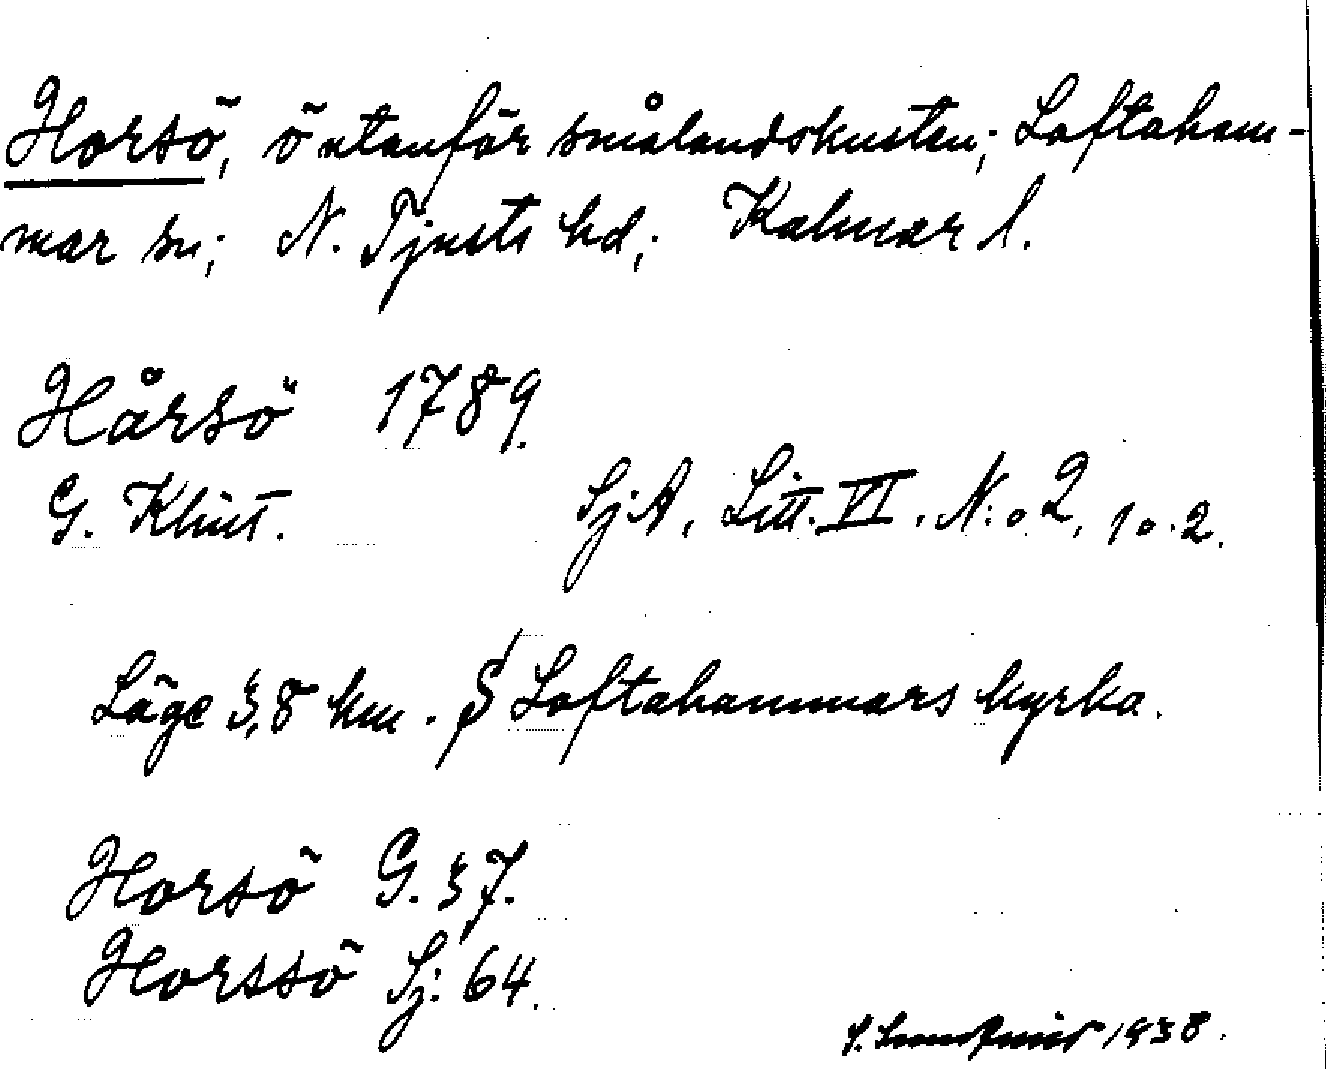 Horsö, ö utanför smålandskusten; Loftaham-
mar sn; N. Tjusts hd; Kalmar l.
Hårsö 1789.
G. Klint. SjA, Litt. VI. N:o 2, 1 o. 2.
Läge 3,8 km. S Loftahammars kyrka.
Horsö G. 37.
Horssö Sj: 64.
1938.